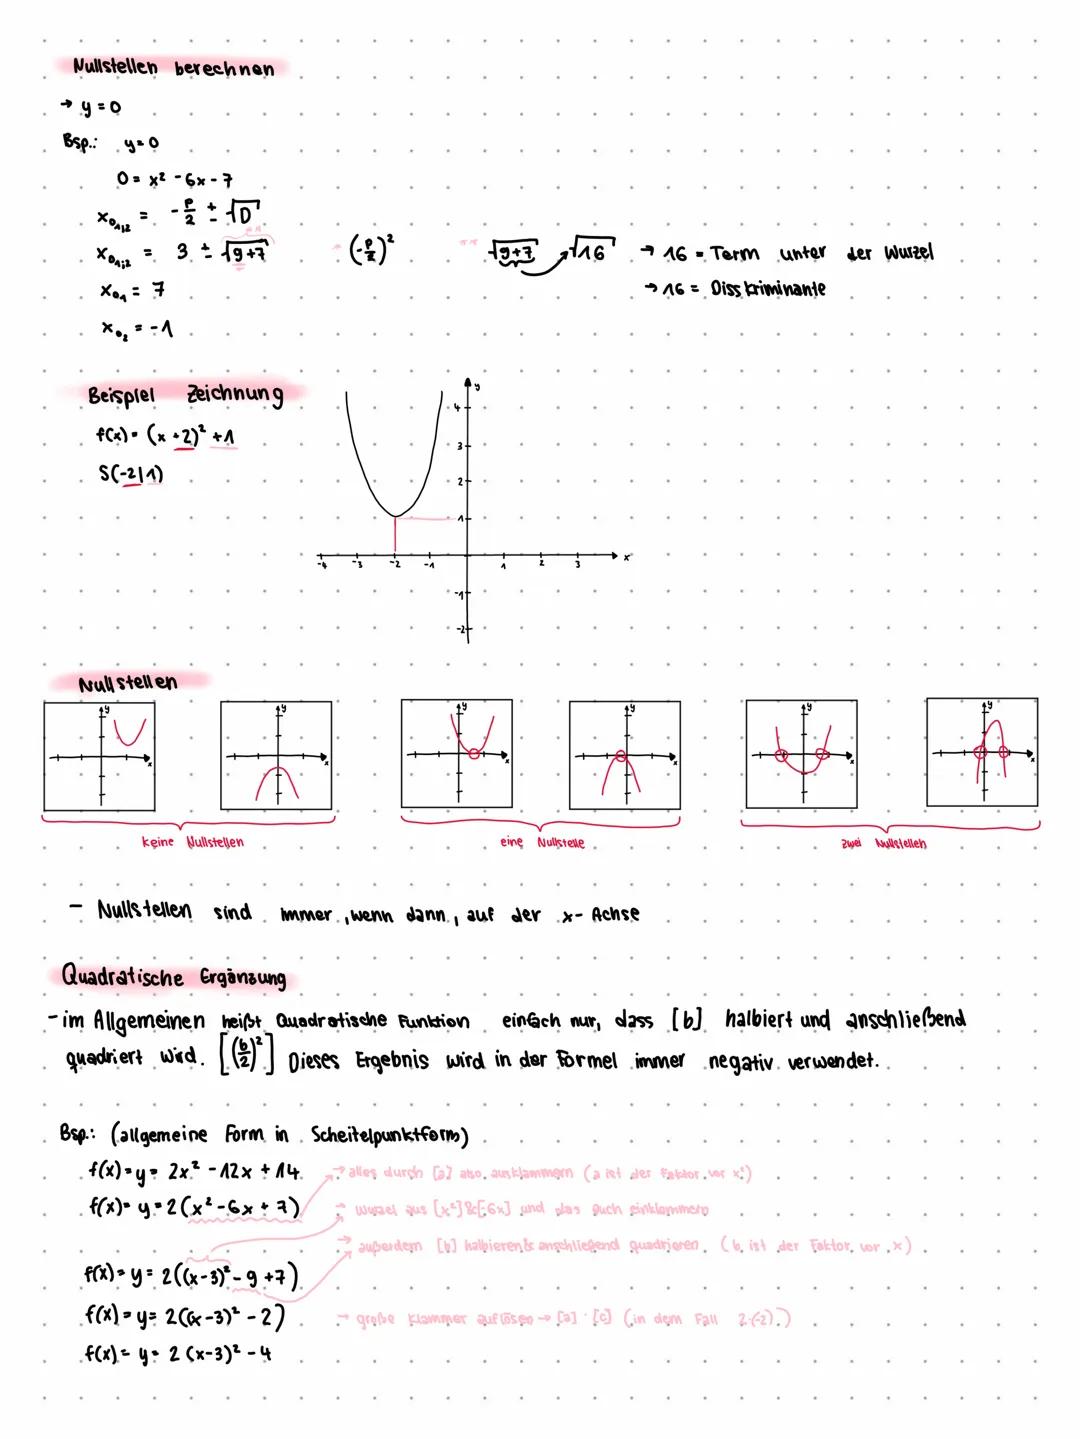 Nullstellen berechnen
→ y = 0
Bsp.: y = 0
0 = x² - 6x - 7
x₀₁,₂ = -p/2 ± √D
x₀₁;₂ = 3 ± √9+7 (-p/2)² √9+7 → √16 → 16 = Term unter der Wurzel
x₀₁ = 7 → 16 = Disskriminante
x₀₂ = -1
Beispiel Zeichnung
f(x) = (x + 2)² + 1
S(-2|1)
y
4
3
2
1
-4 -3 -2 -1 1 2 3 x
-1
-2
Nullstellen
y y y y y y
x x x x x x
keine Nullstellen eine Nullstelle zwei Nullstellen
- Nullstellen sind immer, wenn dann, auf der x-Achse
Quadratische Ergänzung
- im Allgemeinen heißt Quadratische Funktion einfach nur, dass [b] halbiert und anschließend
quadriert wird. [(b/2)²] Dieses Ergebnis wird in der Formel immer negativ verwendet.
Bsp.: (allgemeine Form in Scheitelpunktform)
f(x) = y = 2x² - 12x + 14 → alles durch [a] also ausklammern (a ist der Faktor vor x²)
f(x) = y = 2(x² - 6x + 7) → wurzel aus [x²] & [-6x] und das auch einklammern
→ außerdem [b] halbieren & anschließend quadrieren. (b ist der Faktor vor x)
f(x) = y = 2((x-3)² - 9 + 7)
f(x) = y = 2((x-3)² - 2) → große Klammer auflösen → [a] · [c] (in dem Fall 2·(-2))
f(x) = y = 2(x-3)² - 4